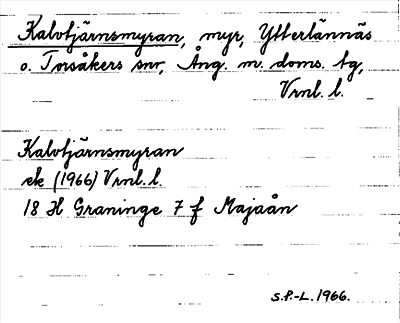 Kalvtjärnsmyran, myr, Ytterlännäs
o. Torsåkers snr, Ång. m. doms. tg,
Vrnl. l.
Kalvtjärnsmyran
ek (1966) Vrnl. l.
18 H Graninge 7 f Majaån
S.P.-L. 1966.